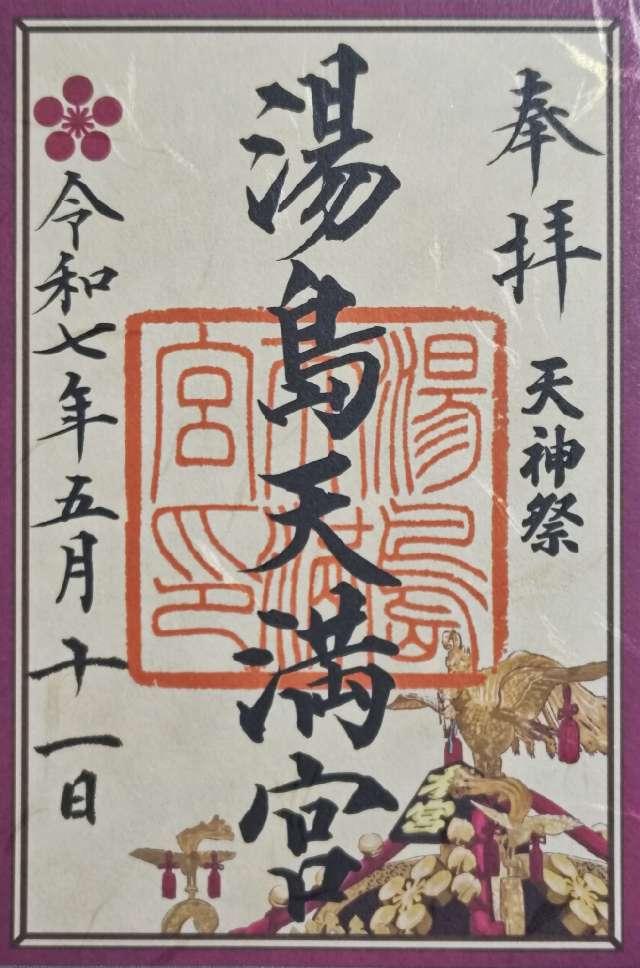 奉拝
天神祭
湯島天満宮
湯島天満宮印
令和七年五月十一日
本宮